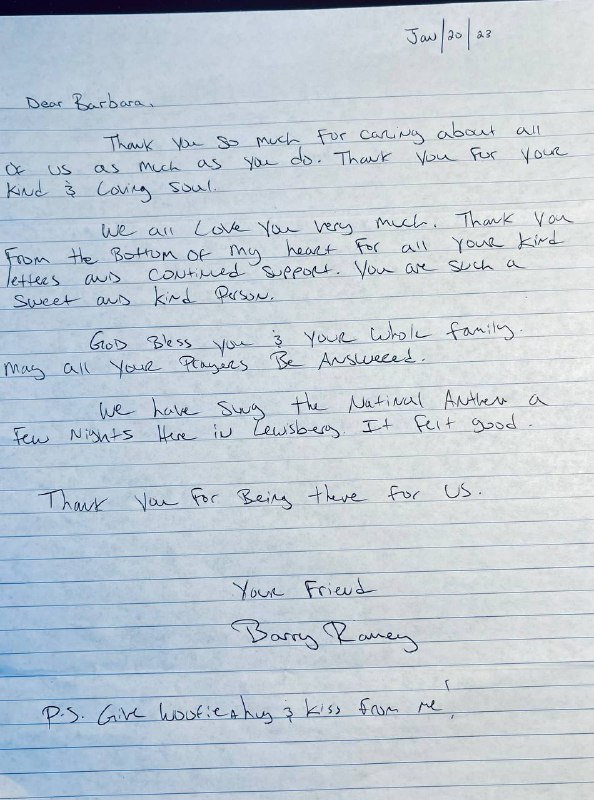 Jan/20/23
Dear Barbara,
Thank you so much for caring about all
of us as much as you do. Thank you for your
kind & loving soul.
We all love you very much. Thank you
from the bottom of my heart for all your kind
letters and continued support. You are such a
sweet and kind person.
God Bless you & your whole family.
May all your prayers be answered.
We have sung the Natinal Anthem a
few nights here in Lewsberg. It felt good.
Thank you for being there for us.
Your Friend
Barry Ramey
P.S. Give Woofie a hug & kiss from me!